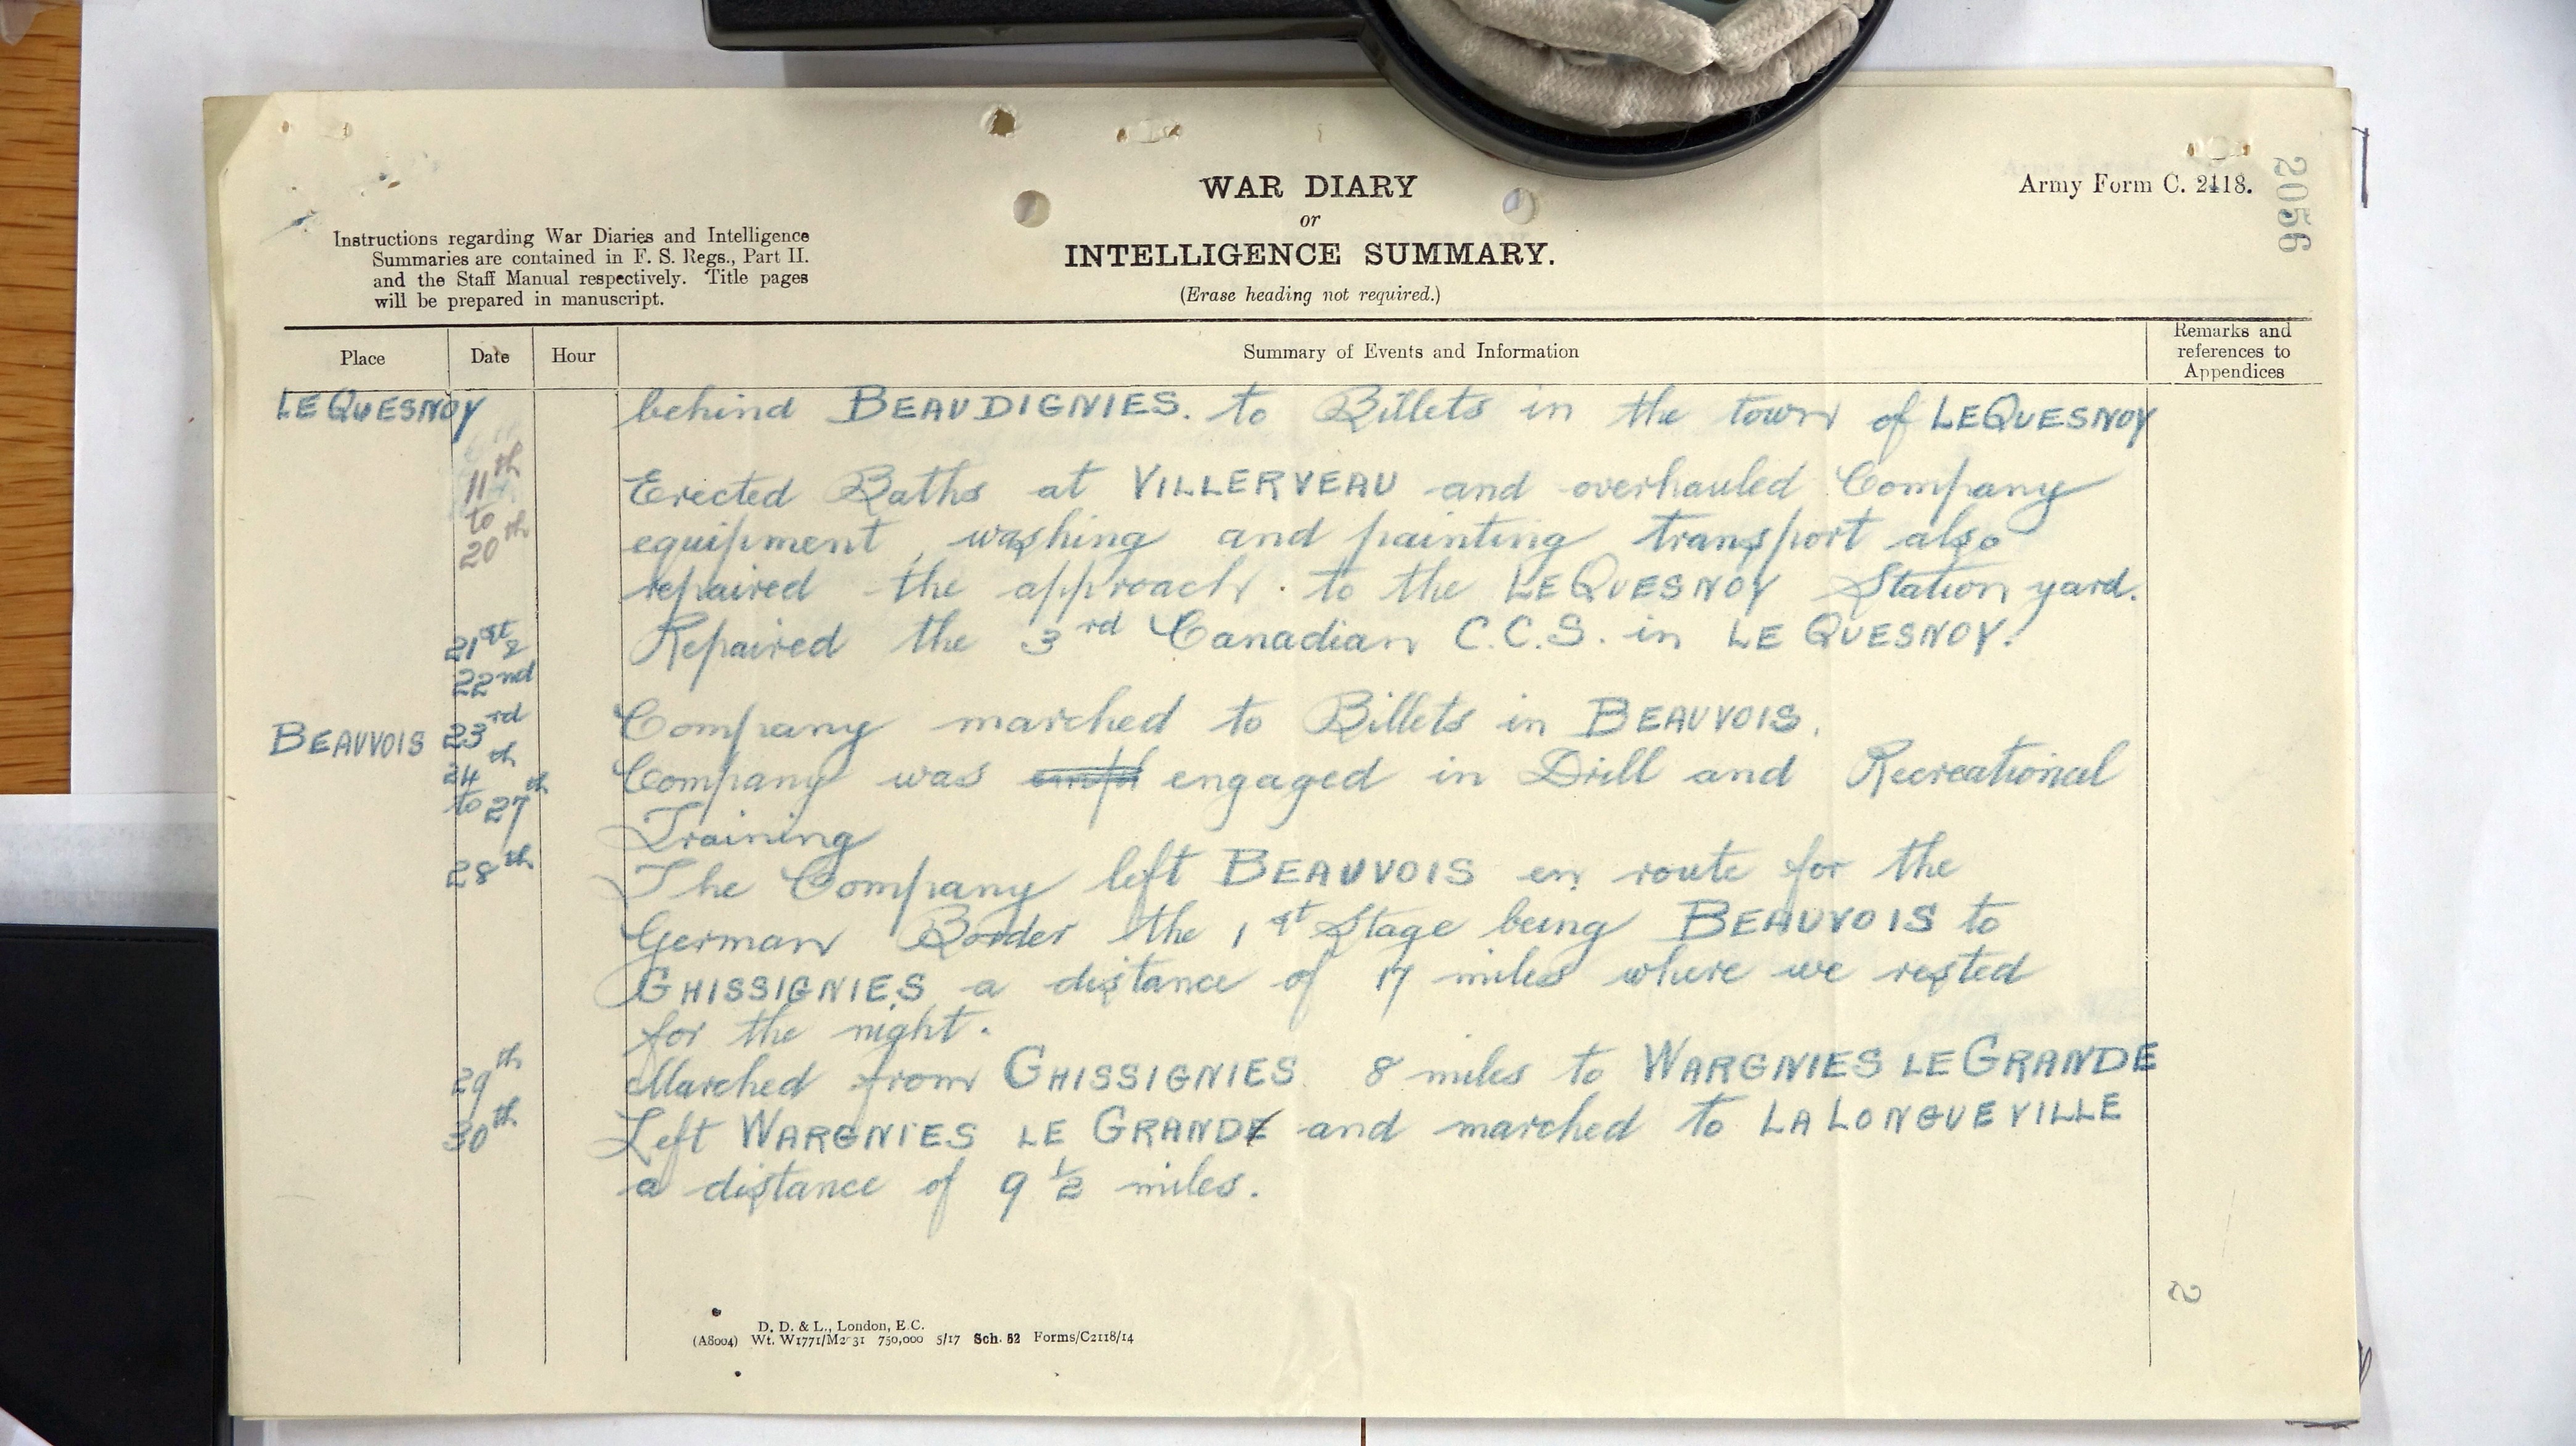 WAR DIARY
or
INTELLIGENCE SUMMARY.
(Erase heading not required.)
Army Form C. 2118.
2056
Instructions regarding War Diaries and Intelligence
Summaries are contained in F. S. Regs., Part II.
and the Staff Manual respectively. Title pages
will be prepared in manuscript.
Place Date Hour Summary of Events and Information Remarks and references to Appendices
LE QUESNOY behind BEAUDIGNIES. to Billets in the town of LE QUESNOY
11th Erected Baths at VILLERVEAU and overhauled Company
to equipment, washing and painting transport also
20th repaired the approach to the LE QUESNOY Station yard.
21st & Repaired the 3rd Canadian C.C.S. in LE QUESNOY.
22nd
BEAUVOIS 23rd Company marched to Billets in BEAUVOIS.
24th Company was engaged in Drill and Recreational
to 27th Training
28th The Company left BEAUVOIS en route for the
German Border the 1st Stage being BEAUVOIS to
GHISSIGNIES a distance of 17 miles where we rested
for the night.
29th Marched from GHISSIGNIES 8 miles to WARGNIES LE GRANDE
30th Left WARGNIES LE GRAND and marched to LA LONGUEVILLE
a distance of 9 ½ miles.
2
D. D. & L., London, E.C.
(A8004) Wt. W1771/M2 31 750,000 5/17 Sch. 52 Forms/C2118/14